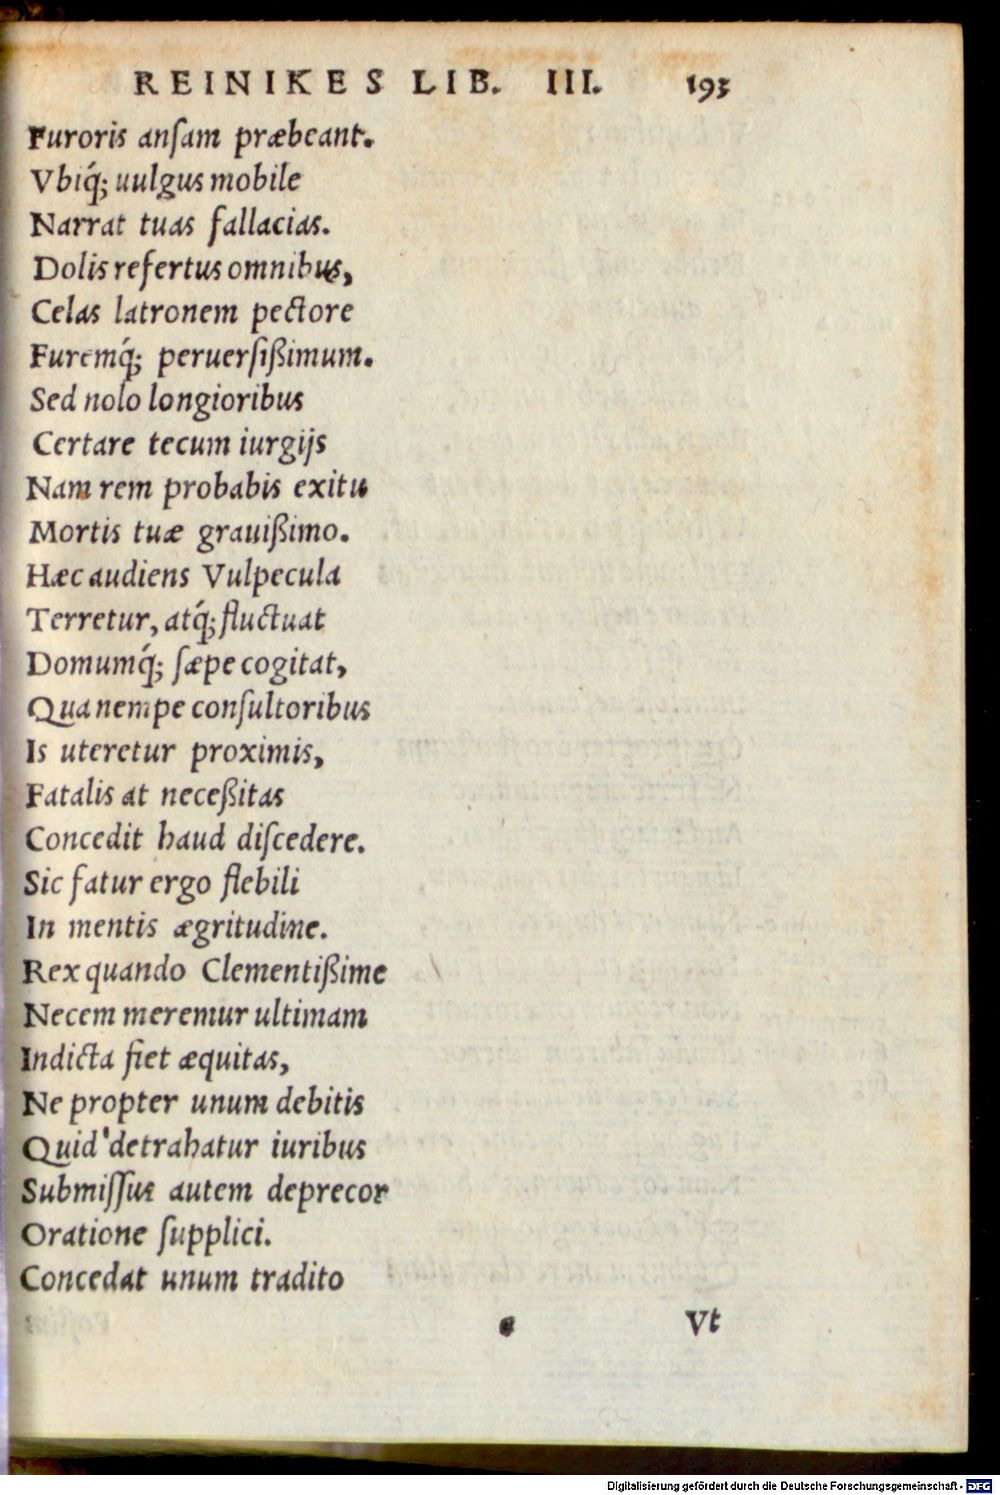 REINIKES LIB. III. 193
Furoris anſam præbeant.
Vbiq́; uulgus mobile
Narrat tuas fallacias.
Dolis refertus omnibus,
Celas latronem pectore
Furemq́; peruerſißimum.
Sed nolo longioribus
Certare tecum iurgijs
Nam rem probabis exitu
Mortis tuæ grauißimo.
Hæc audiens Vulpecula
Terretur, atq́; fluctuat
Domumq́; ſæpe cogitat,
Qua nempe conſultoribus
Is uteretur proximis,
Fatalis at neceßitas
Concedit haud diſcedere.
Sic fatur ergo flebili
In mentis ægritudine.
Rex quando Clementißime
Necem meremur ultimam
Indicta fiet æquitas,
Ne propter unum debitis
Quid detrahatur iuribus
Submiſſus autem deprecor
Oratione ſupplici.
Concedat unum tradito
e Vt
Digitalisierung gefördert durch die Deutsche Forschungsgemeinschaft - DFG